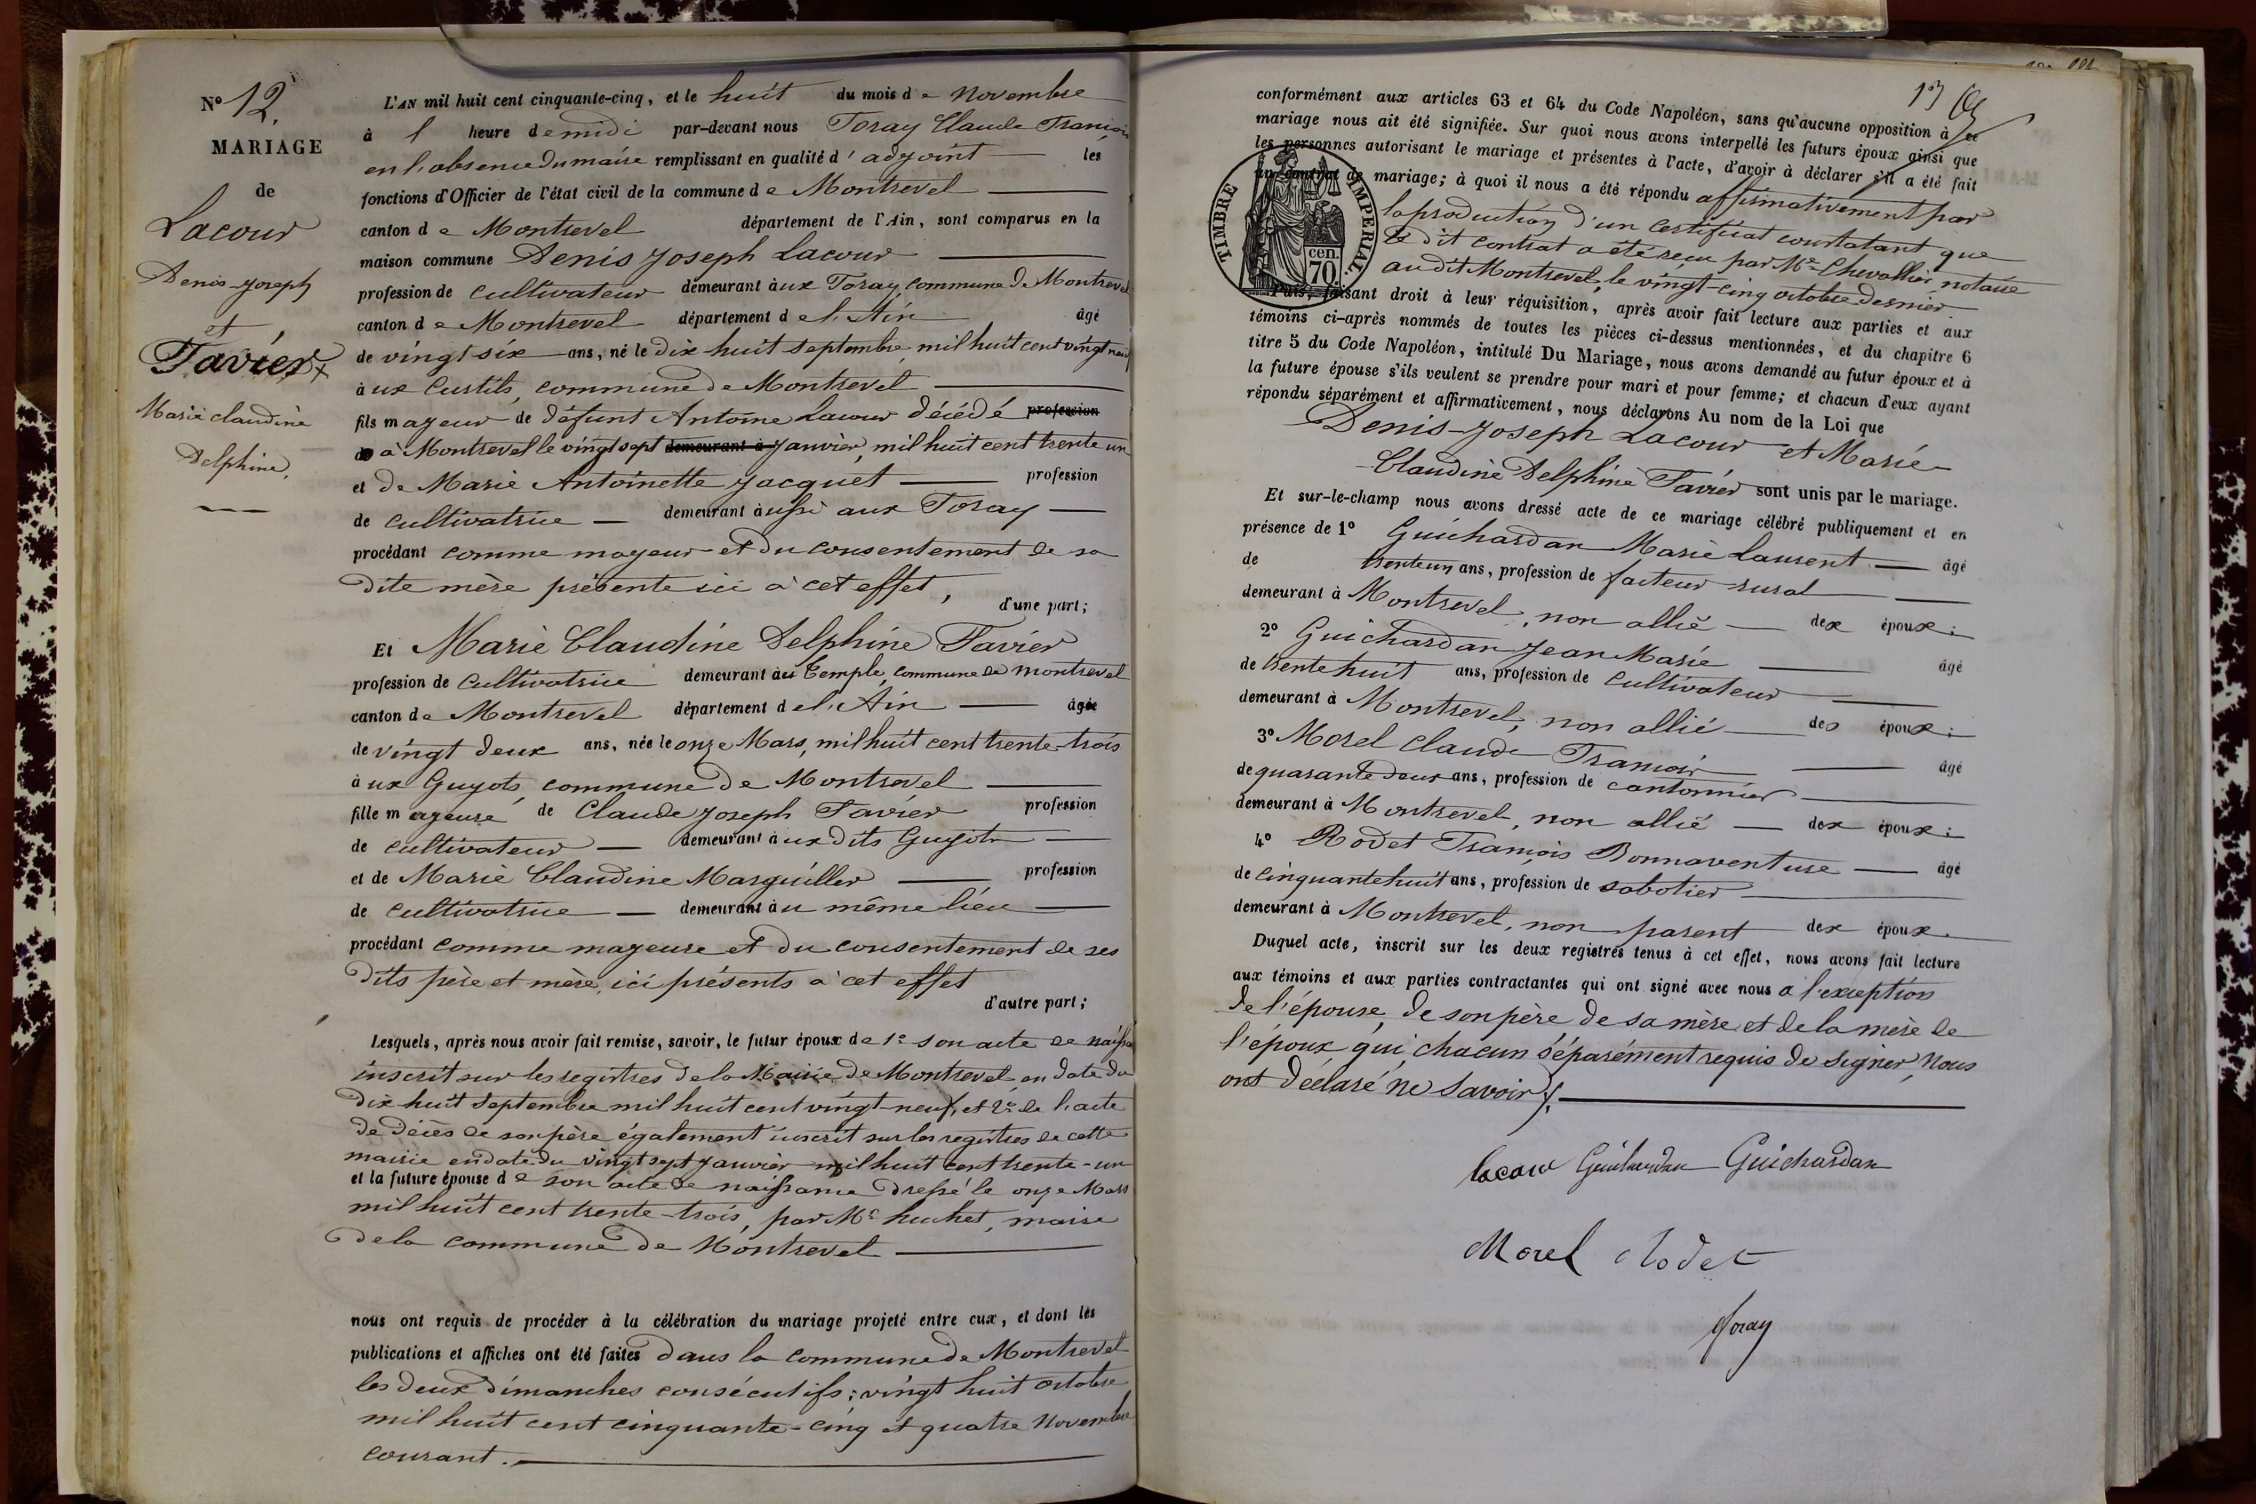 Nº 12.
MARIAGE
de
Lacour
Denis-Joseph
et
Favier
Marie Claudine
Delphine.
L'AN mil huit cent cinquante-cinq, et le huit du mois de Novembre
à 1 heure de midi par-devant nous Foray Claude François
en l'absence du maire remplissant en qualité d'adjoint les
fonctions d'Officier de l'état civil de la commune de Montrevel
canton de Montrevel département de l'Ain, sont comparus en la
maison commune Denis Joseph Lacour
profession de cultivateur demeurant aux Foray, commune de Montrevel
canton de Montrevel département de l'Ain âgé
de vingt six ans, né le dix huit septembre mil huit cent vingt neuf
aux Curtils, commune de Montrevel
fils mayeur de défunt Antoine Lacour décédé profession
de à Montrevel le vingt sept demeurant à janvier, mil huit cent trente un
et de Marie Antoinette Jacquet profession
de cultivatrice demeurant aussi aux Foray
procédant comme mayeur et du consentement de sa
dite mère présente ici à cet effet, d'une part;
Et Marie Claudine Delphine Favier
profession de cultivatrice demeurant au Temple, commune de Montrevel
canton de Montrevel département de l'Ain âgée
de vingt deux ans, née le onze Mars, mil huit cent trente-trois
aux Guyots, commune de Montrevel
fille mayeure de Claude Joseph Favier profession
de cultivateur demeurant aux dits Guyots
et de Marie Claudine Marguiller profession
de cultivatrice demeurant au même lieu
procédant comme mayeure et du consentement de ses
dits père et mère, ici présents à cet effet
d'autre part;
Lesquels, après nous avoir fait remise, savoir, le futur époux de 1º son acte de naissance
inscrit sur les registres de la Mairie de Montrevel, en date du
dix huit septembre mil huit cent vingt-neuf, et 2º de l'acte
de décès de son père également inscrit sur les registres de cette
mairie en date du vingt sept janvier mil huit cent trente-un
et la future épouse de son acte de naissance dressé le onze Mars
mil huit cent trente-trois, par Mr huchet, maire
de la commune de Montrevel
nous ont requis de procéder à la célébration du mariage projeté entre eux, et dont les
publications et affiches ont été faites dans la commune de Montrevel
les deux dimanches consécutifs; vingt huit octobre
mil huit cent cinquante-cinq et quatre Novembre
courant.
137
conformément aux articles 63 et 64 du Code Napoléon, sans qu'aucune opposition à ce
mariage nous ait été signifiée. Sur quoi nous avons interpellé les futurs époux ainsi que
les personnes autorisant le mariage et présentes à l'acte, d'avoir à déclarer s'il a été fait
un contrat de mariage; à quoi il nous a été répondu affirmativement par
la production d'un certificat constatant que
le dit contrat a été reçu par Me Chevallier notaire
au dit Montrevel, le vingt-cinq octobre dernier
TIMBRE IMPERIAL.
cen. 70
Puis, faisant droit à leur réquisition, après avoir fait lecture aux parties et aux
témoins ci-après nommés de toutes les pièces ci-dessus mentionnées, et du chapitre 6
titre 5 du Code Napoléon, intitulé Du Mariage, nous avons demandé au futur époux et à
la future épouse s'ils veulent se prendre pour mari et pour femme; et chacun d'eux ayant
répondu séparément et affirmativement, nous déclarons Au nom de la Loi que
Denis-Joseph Lacour et Marie
Claudine Delphine Favier sont unis par le mariage.
Et sur-le-champ nous avons dressé acte de ce mariage célébré publiquement et en
présence de 1º Guichardan Marie Laurent âgé
de trente un ans, profession de facteur rural
demeurant à Montrevel, non allié des époux;
2º Guichardan Jean Marie âgé
de trente huit ans, profession de cultivateur
demeurant à Montrevel, non allié des époux;
3º Morel Claude François âgé
de quarante deux ans, profession de cantonnier
demeurant à Montrevel, non allié des époux;
4º Rodet François Bonnaventure âgé
de cinquante huit ans, profession de sabotier
demeurant à Montrevel, non parent des époux.
Duquel acte, inscrit sur les deux registres tenus à cet effet, nous avons fait lecture
aux témoins et aux parties contractantes qui ont signé avec nous à l'exception
de l'épouse, de son père de sa mère et de la mère de
l'époux qui, chacun séparément requis de signer, nous
ont déclaré ne savoir.
lacour Guichardan Guichardan
Morel Rodet
foray